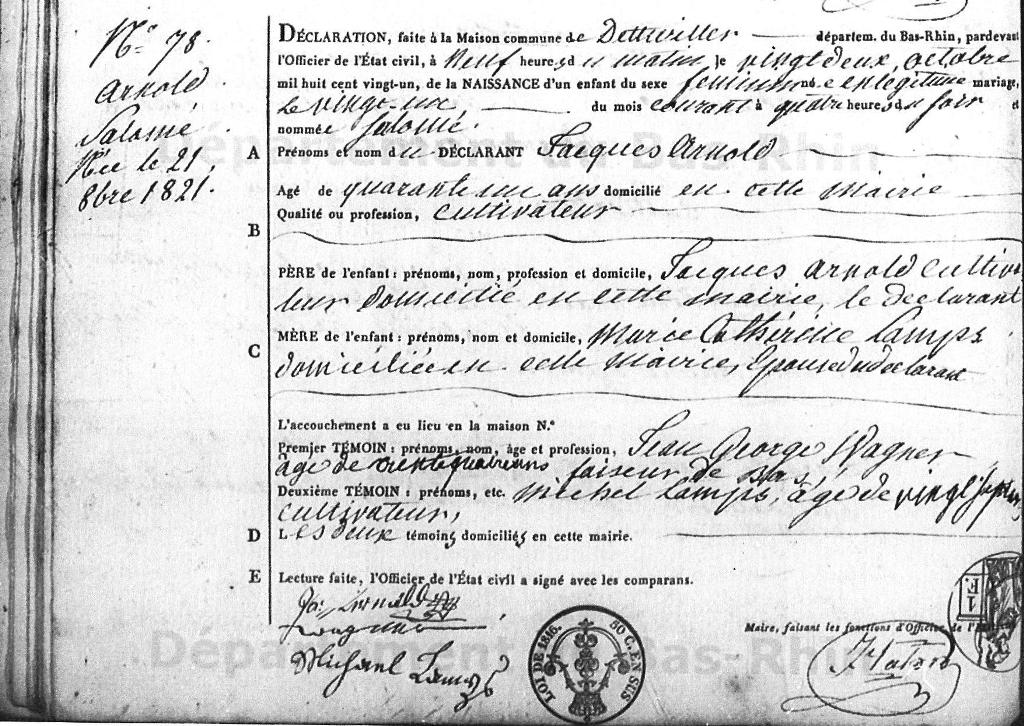 N° 78.
Arnold
Salomé
Née le 21
8bre 1821.
DÉCLARATION, faite à la Maison commune de Dettwiller départem. du Bas-Rhin, pardevant
l'Officier de l'État civil, à Neuf heures du matin, le vingt deux, octobre
mil huit cent vingt-un, de la NAISSANCE d'un enfant du sexe feminin né e en légitime mariage,
Le vingt un, du mois courant à quatre heures du soir et
nommée Salomé.
A Prénoms et nom du DÉCLARANT Jacques Arnold
Agé de quarante un ans domicilié en cette mairie
Qualité ou profession, cultivateur
B
PÈRE de l'enfant : prénoms, nom, profession et domicile, Jacques Arnold cultiva
teur domicilié en cette mairie, le declarant
MÈRE de l'enfant : prénoms, nom et domicile, Marie Cathérine Lamps
C
domiciliée en cette mairie, Epouse du declarant
L'accouchement a eu lieu en la maison N.°
Premier TÉMOIN : prénoms, nom, âge et profession, Jean George Wagner
âgé de trente quatre ans faiseur de bas
Deuxième TÉMOIN : prénoms, etc. Michel Lamps, âgé de vingt sept ans
cultivateur,
D Les deux témoins domiciliés en cette mairie.
E Lecture faite, l'Officier de l'État civil a signé avec les comparans.
Wagner
Michael Lamps
Maire, faisant les fonctions d'Officier de l'É
LOI DE 1816. 50 C. EN SUS
1 F.
Département du Bas-Rhin
Département du Bas-Rhin